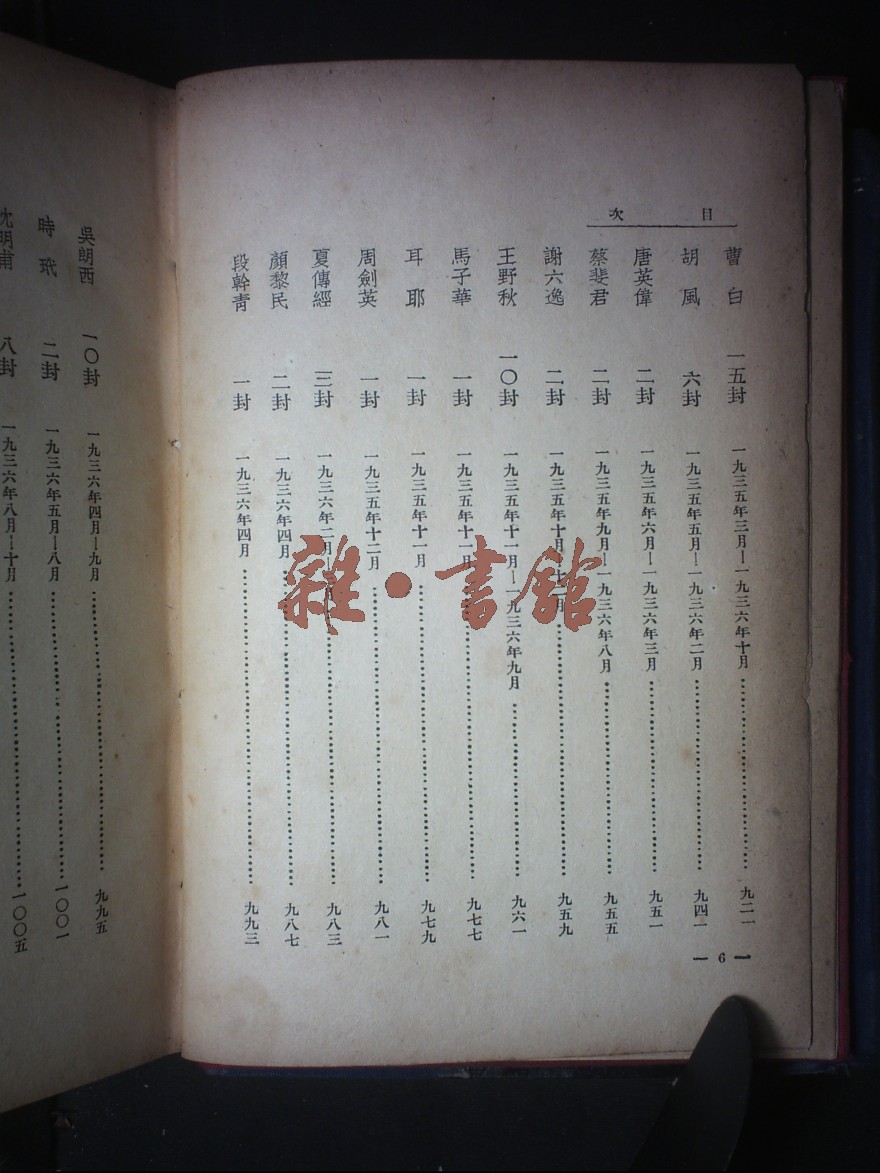 目次
曹白 一五封 一九三五年三月—一九三六年十月 九二一
胡風 六封 一九三五年五月—一九三六年二月 九四一
唐英偉 二封 一九三五年六月—一九三六年三月 九五一
蔡斐君 二封 一九三五年九月—一九三六年八月 九五五
謝六逸 二封 一九三五年十月—十二月 九五九
王野秋 一〇封 一九三五年十一月—一九三六年九月 九六一
馬子華 一封 一九三五年十一月 九七七
耳耶 一封 一九三五年十一月 九七九
周劍英 一封 一九三五年十二月 九八一
夏傳經 三封 一九三六年二月—三月 九八三
顏黎民 二封 一九三六年四月 九八七
段幹青 一封 一九三六年四月 九九三
— 6 —
吳朗西 一〇封 一九三六年四月—九月 九九五
時玳 二封 一九三六年五月—八月 一〇〇一
沈明甫 八封 一九三六年八月—十月 一〇〇五
雜·書館